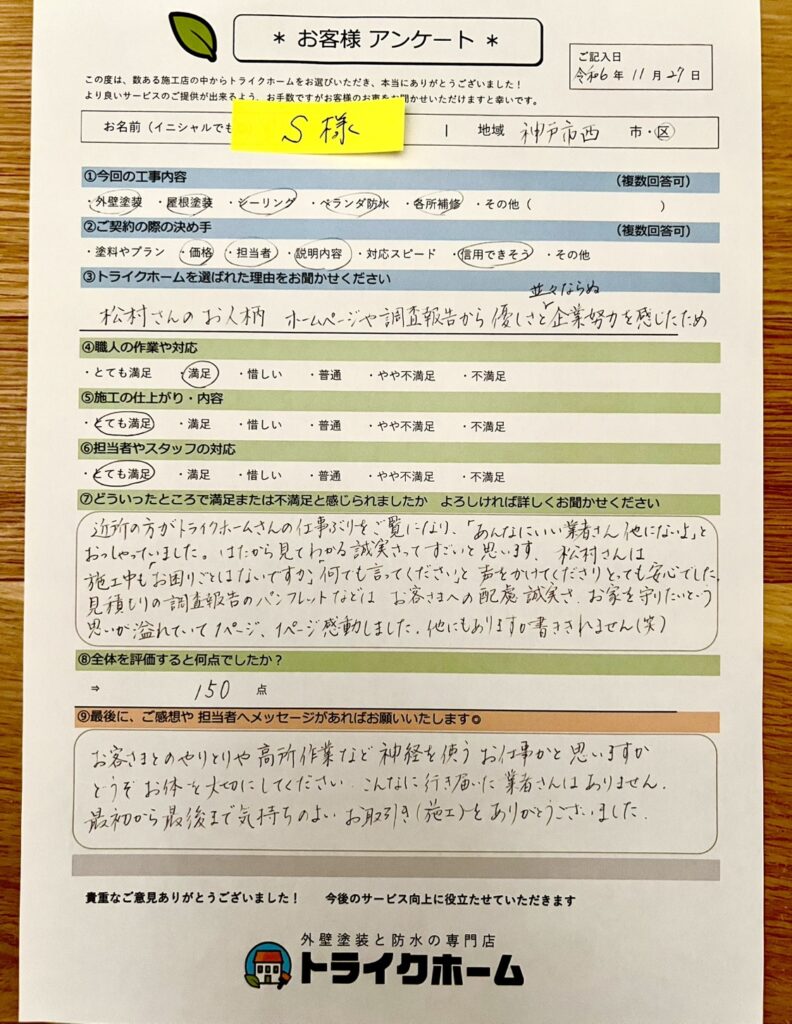 * お客様 アンケート *
ご記入日
令和6年 11月 27日
この度は、数ある施工店の中からトライクホームをお選びいただき、本当にありがとうございました！
より良いサービスのご提供が出来るよう、お手数ですがお客様のお声をお聞かせいただけますと幸いです。
お名前（イニシャルでも S様 地域 神戸市西 市・区
①今回の工事内容 （複数回答可）
・外壁塗装 ・屋根塗装 ・シーリング ・ベランダ防水 ・各所補修 ・その他（ ）
②ご契約の際の決め手 （複数回答可）
・塗料やプラン ・価格 ・担当者 ・説明内容 ・対応スピード ・信用できそう ・その他
③トライクホームを選ばれた理由をお聞かせください
並々ならぬ
松村さんのお人柄 ホームページや調査報告から優しさと企業努力を感じたため
④職人の作業や対応
・とても満足 ・満足 ・惜しい ・普通 ・やや不満足 ・不満足
⑤施工の仕上がり・内容
・とても満足 ・満足 ・惜しい ・普通 ・やや不満足 ・不満足
⑥担当者やスタッフの対応
・とても満足 ・満足 ・惜しい ・普通 ・やや不満足 ・不満足
⑦どういったところで満足または不満足と感じられましたか よろしければ詳しくお聞かせください
近所の方がトライクホームさんの仕事ぶりをご覧になり、「あんなにいい業者さん他にないよ」と
おっしゃっていました。はたから見てわかる誠実さってすごいと思います、松村さんは
施工中も「お困りごとはないですか」「何でも言ってください」と声をかけてくださりとっても安心でした。
見積もりの調査報告のパンフレットなどは お客さまへの配慮 誠実さ、お家を守りたいという
思いが溢れていて1ページ、1ページ感動しました。他にもありますが書ききれません(笑)
⑧全体を評価すると何点でしたか？
⇒ 150 点
⑨最後に、ご感想や 担当者へメッセージがあればお願いいたします◎
お客さまとのやりとりや高所作業など神経を使うお仕事かと思いますが
どうぞお体を大切にしてください。こんなに行き届いた業者さんはありません。
最初から最後まで気持ちのよいお取引き(施工)をありがとうございました。
貴重なご意見ありがとうございました！ 今後のサービス向上に役立たせていただきます
外壁塗装と防水の専門店
トライクホーム